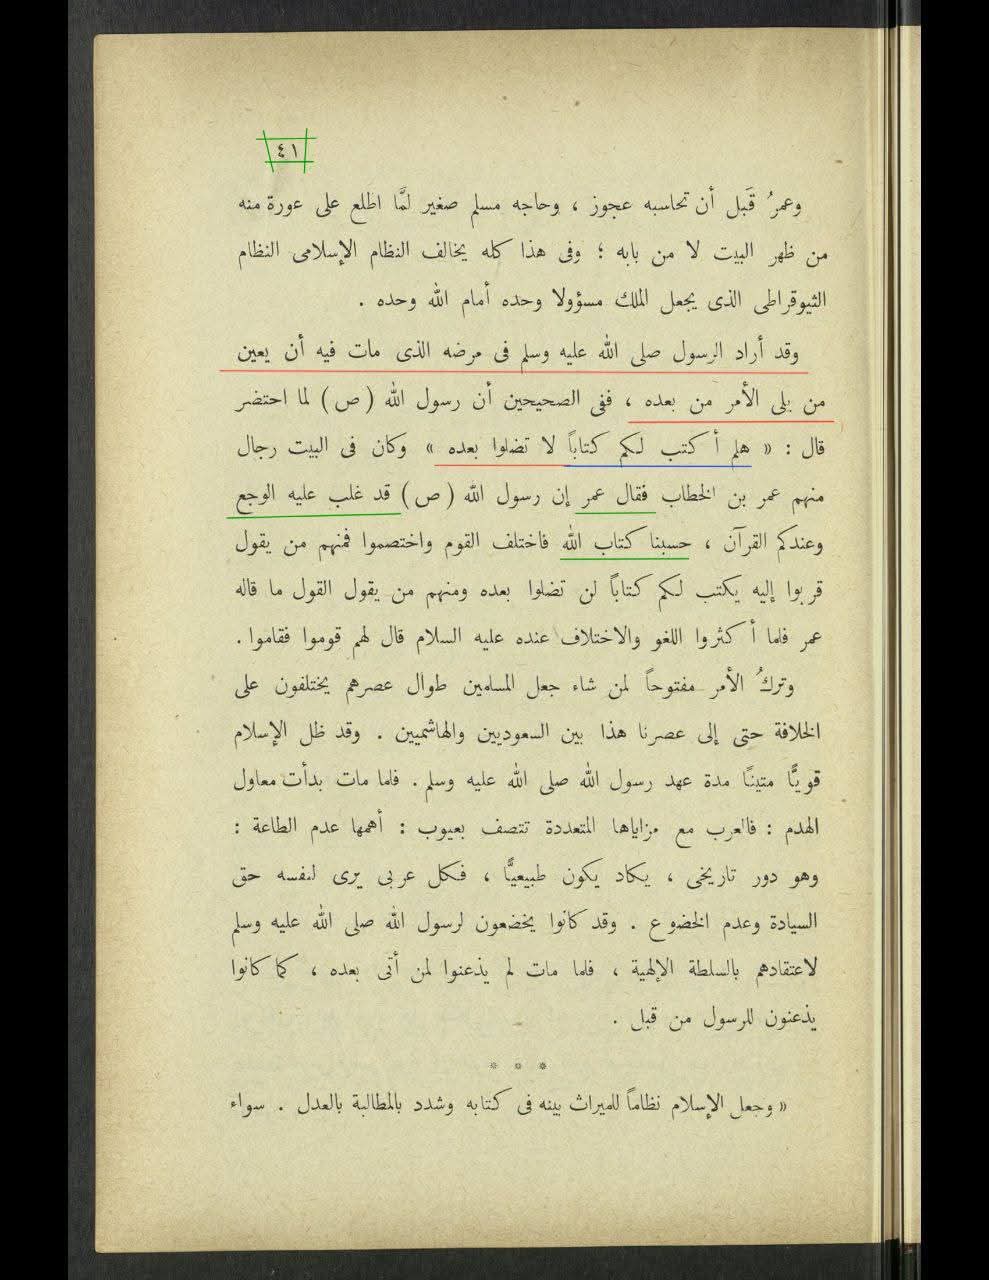 ٤١
وعمرُ قَبل أن تحاسبه عجوز ، وحاجه مسلم صغير لمَّا اطلع على عورة منه
من ظهر البيت لا من بابه ؛ وفى هذا كله يخالف النظام الإسلامى النظام
الثيوقراطى الذى يجعل الملك مسؤولا وحده أمام الله وحده .
وقد أراد الرسول صلى الله عليه وسلم فى مرضه الذى مات فيه أن يعين
من يلى الأمر من بعده ، ففى الصحيحين أن رسول الله (ص) لما احتضر
قال : « هلم أكتب لكم كتاباً لا تضلوا بعده » وكان فى البيت رجال
منهم عمر بن الخطاب فقال عمر إن رسول الله (ص) قد غلب عليه الوجع
وعندكم القرآن ، حسبنا كتاب الله فاختلف القوم واختصموا فمنهم من يقول
قربوا إليه يكتب لكم كتاباً لن تضلوا بعده ومنهم من يقول القول ما قاله
عمر فلما أكثروا اللغو والاختلاف عنده عليه السلام قال لهم قوموا فقاموا .
وتركُ الأمر مفتوحاً لمن شاء جعل المسلمين طوال عصرهم يختلفون على
الخلافة حتى إلى عصرنا هذا بين السعوديين والهاشميين . وقد ظل الإسلام
قويًّا متينًا مدة عهد رسول الله صلى الله عليه وسلم . فلما مات بدأت معاول
الهدم : فالعرب مع مزاياها المتعددة تتصف بعيوب : أهمها عدم الطاعة :
وهو دور تاريخى ، يكاد يكون طبيعيًّا ، فكل عربى يرى لنفسه حق
السيادة وعدم الخضوع . وقد كانوا يخضعون لرسول الله صلى الله عليه وسلم
لاعتقادهم بالسلطة الإلهية ، فلما مات لم يذعنوا لمن أتى بعده ، كما كانوا
يذعنون للرسول من قبل .
* * *
« وجعل الإسلام نظاماً للميراث بينه فى كتابه وشدد بالمطالبة بالعدل . سواء